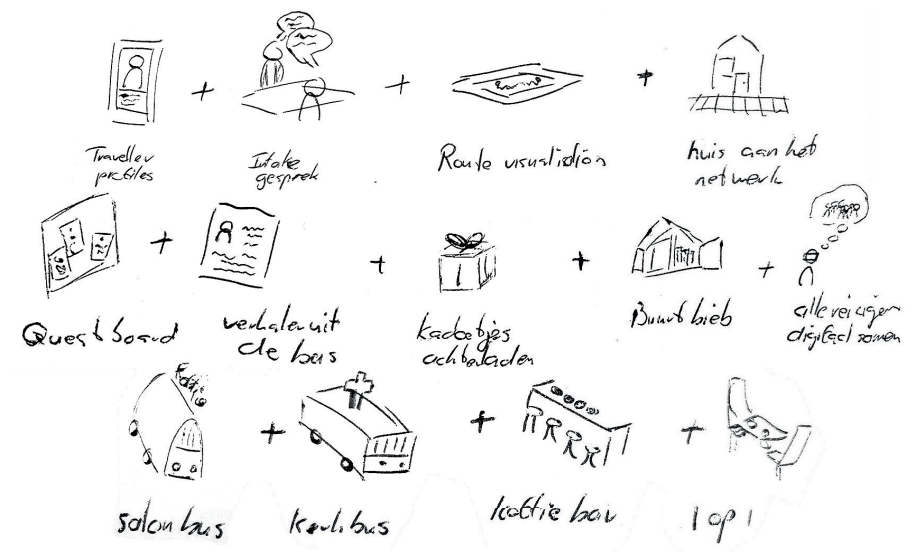 Traveller
profiles
Intake
gesprek
Route visualistion
huis aan het
netwerk
Questboard
verhalen uit
de bus
kadootjes
achterladen
Buurtbieb
alle reizigers
digitaal samen
salon bus
kerk bus
koffie bar
1 op 1